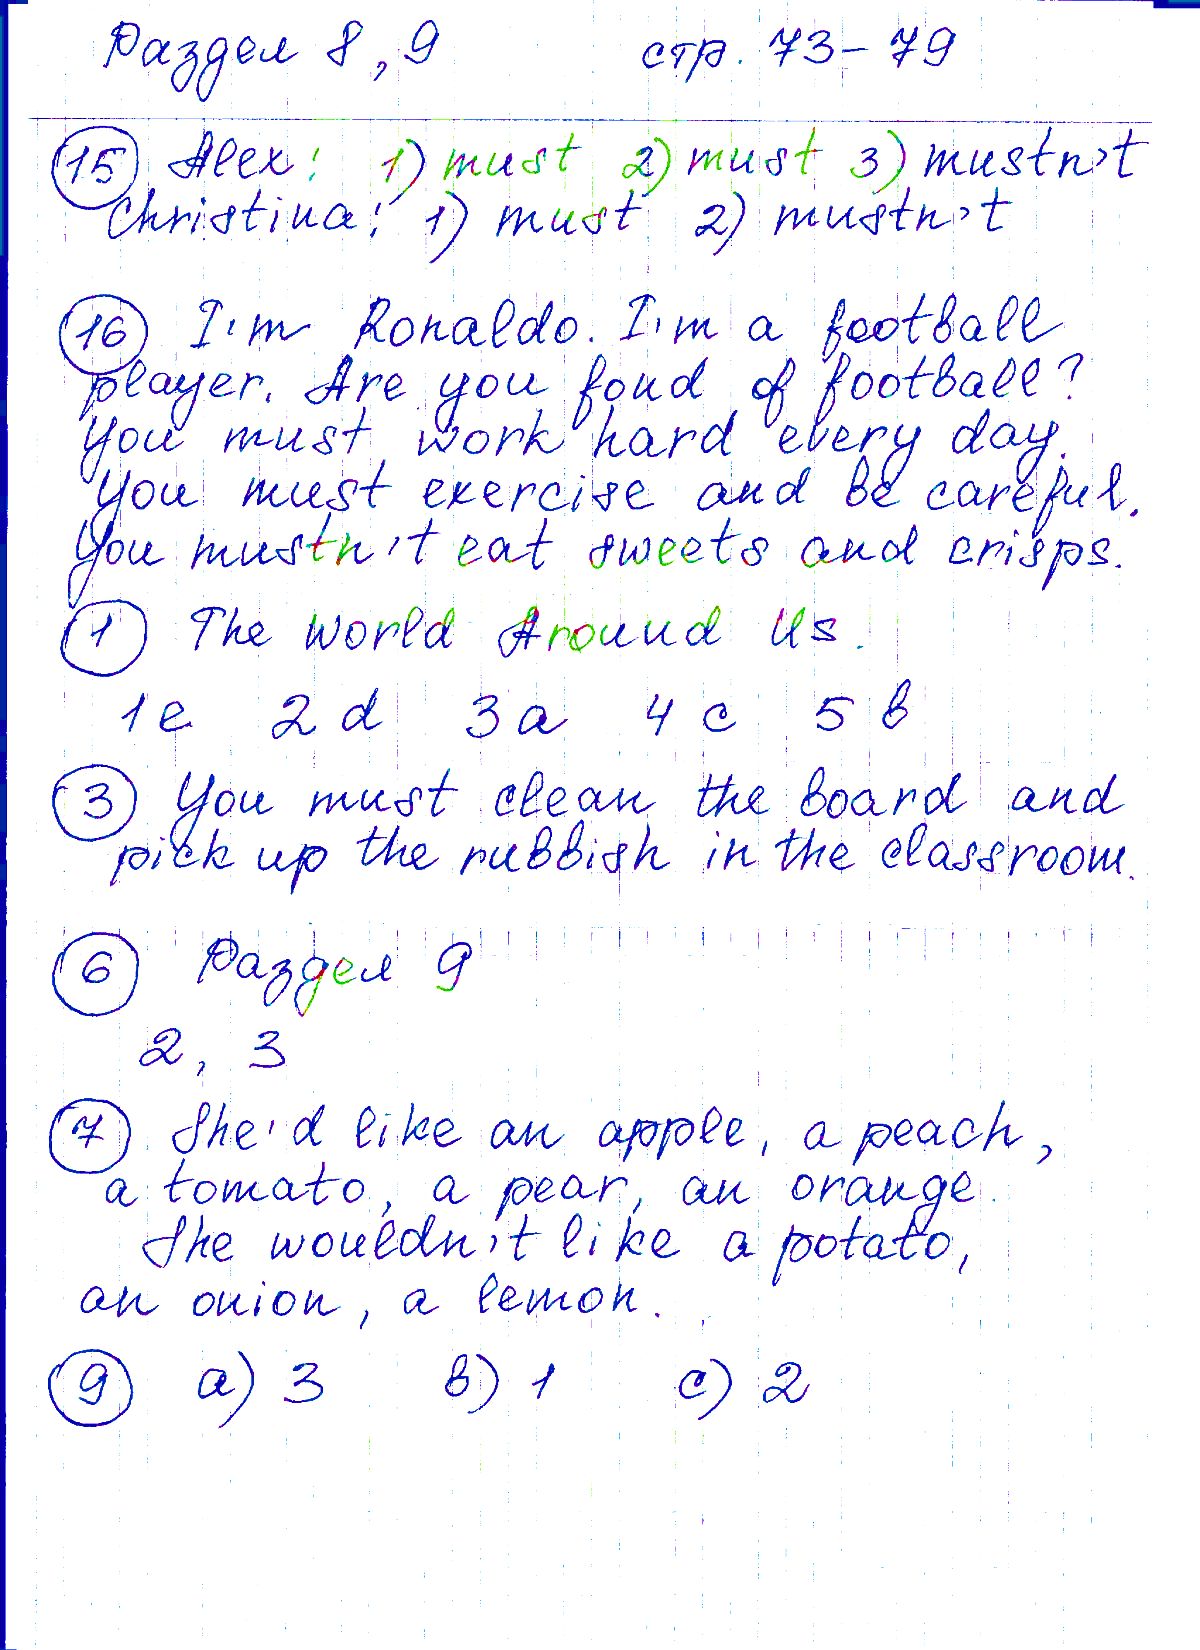 Раздел 8, 9 стр. 73-79
15 Alex: 1) must 2) must 3) mustn't
Christina: 1) must 2) mustn't
16 I'm Ronaldo. I'm a football
player. Are you fond of football?
You must work hard every day.
You must exercise and be careful.
You mustn't eat sweets and crisps.
1 The World Around Us.
1e 2d 3a 4c 5b
3 You must clean the board and
pick up the rubbish in the classroom.
6 Раздел 9
2, 3
7 She'd like an apple, a peach,
a tomato, a pear, an orange.
She wouldn't like a potato,
an onion, a lemon.
9 a) 3 b) 1 c) 2